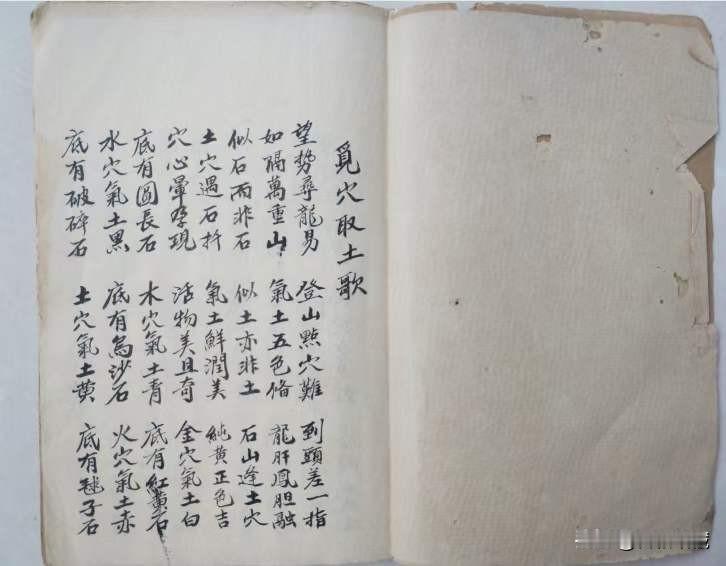 覓穴取土歌
望势尋龍易 登山點穴難 到頭差一指
如隔萬重山 氣土五色俻 龍肝鳳胆融
似石而非石 似土亦非土 石山逢土穴
土穴遇石扦 氣土鮮潤美 純黄正色吉
穴心暈孕現 活物美且奇 金穴氣土白
底有圓長石 木穴氣土青 底有紅黃石
水穴氣土黑 底有烏沙石 火穴氣土赤
底有破碎石 土穴氣土黄 底有毬子石